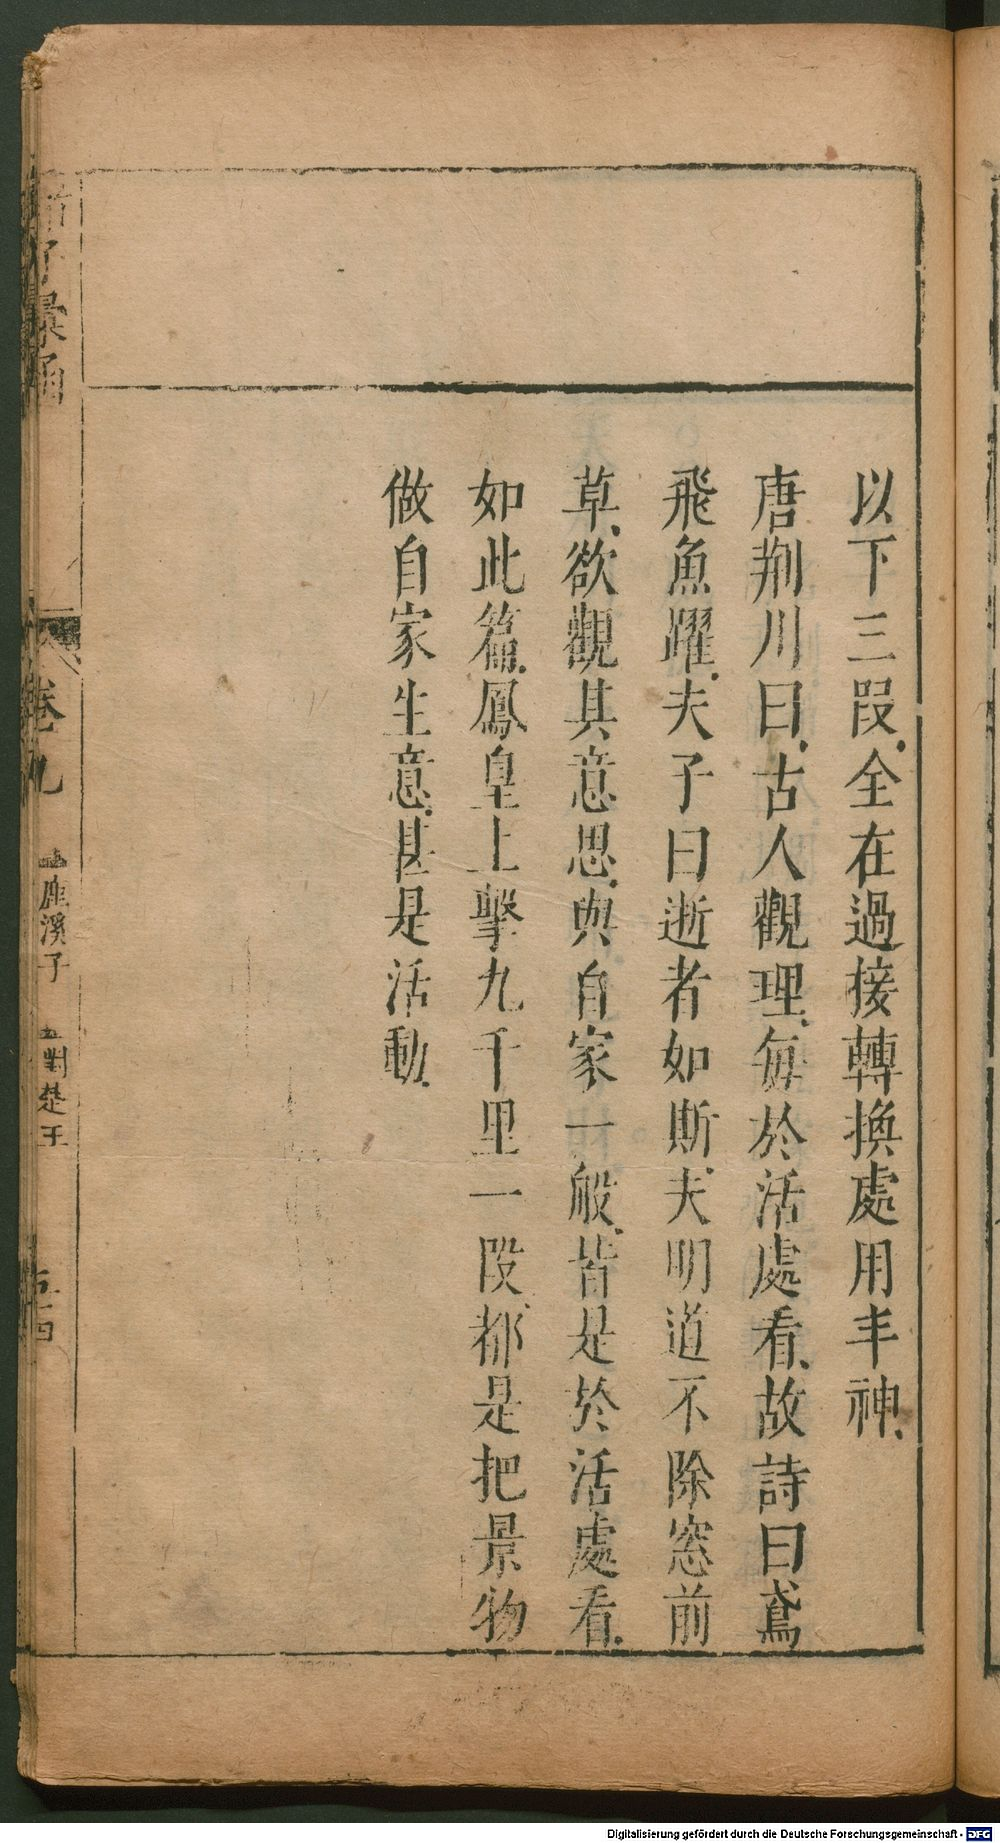 以下三段、全在過接轉換處用丰神、
唐荆川曰、古人觀理、每於活處看、故詩曰鳶
飛魚躍、夫子曰逝者如斯夫、明道不除窓前
草、欲觀其意思、與自家一般、皆是於活處看、
如此篇、鳳皇上擊九千里一段、都是把景物
做自家生意、甚是活動、
諸子彙函
卷九
鹿溪子
對楚王
五十四
Digitalisierung gefördert durch die Deutsche Forschungsgemeinschaft - DFG